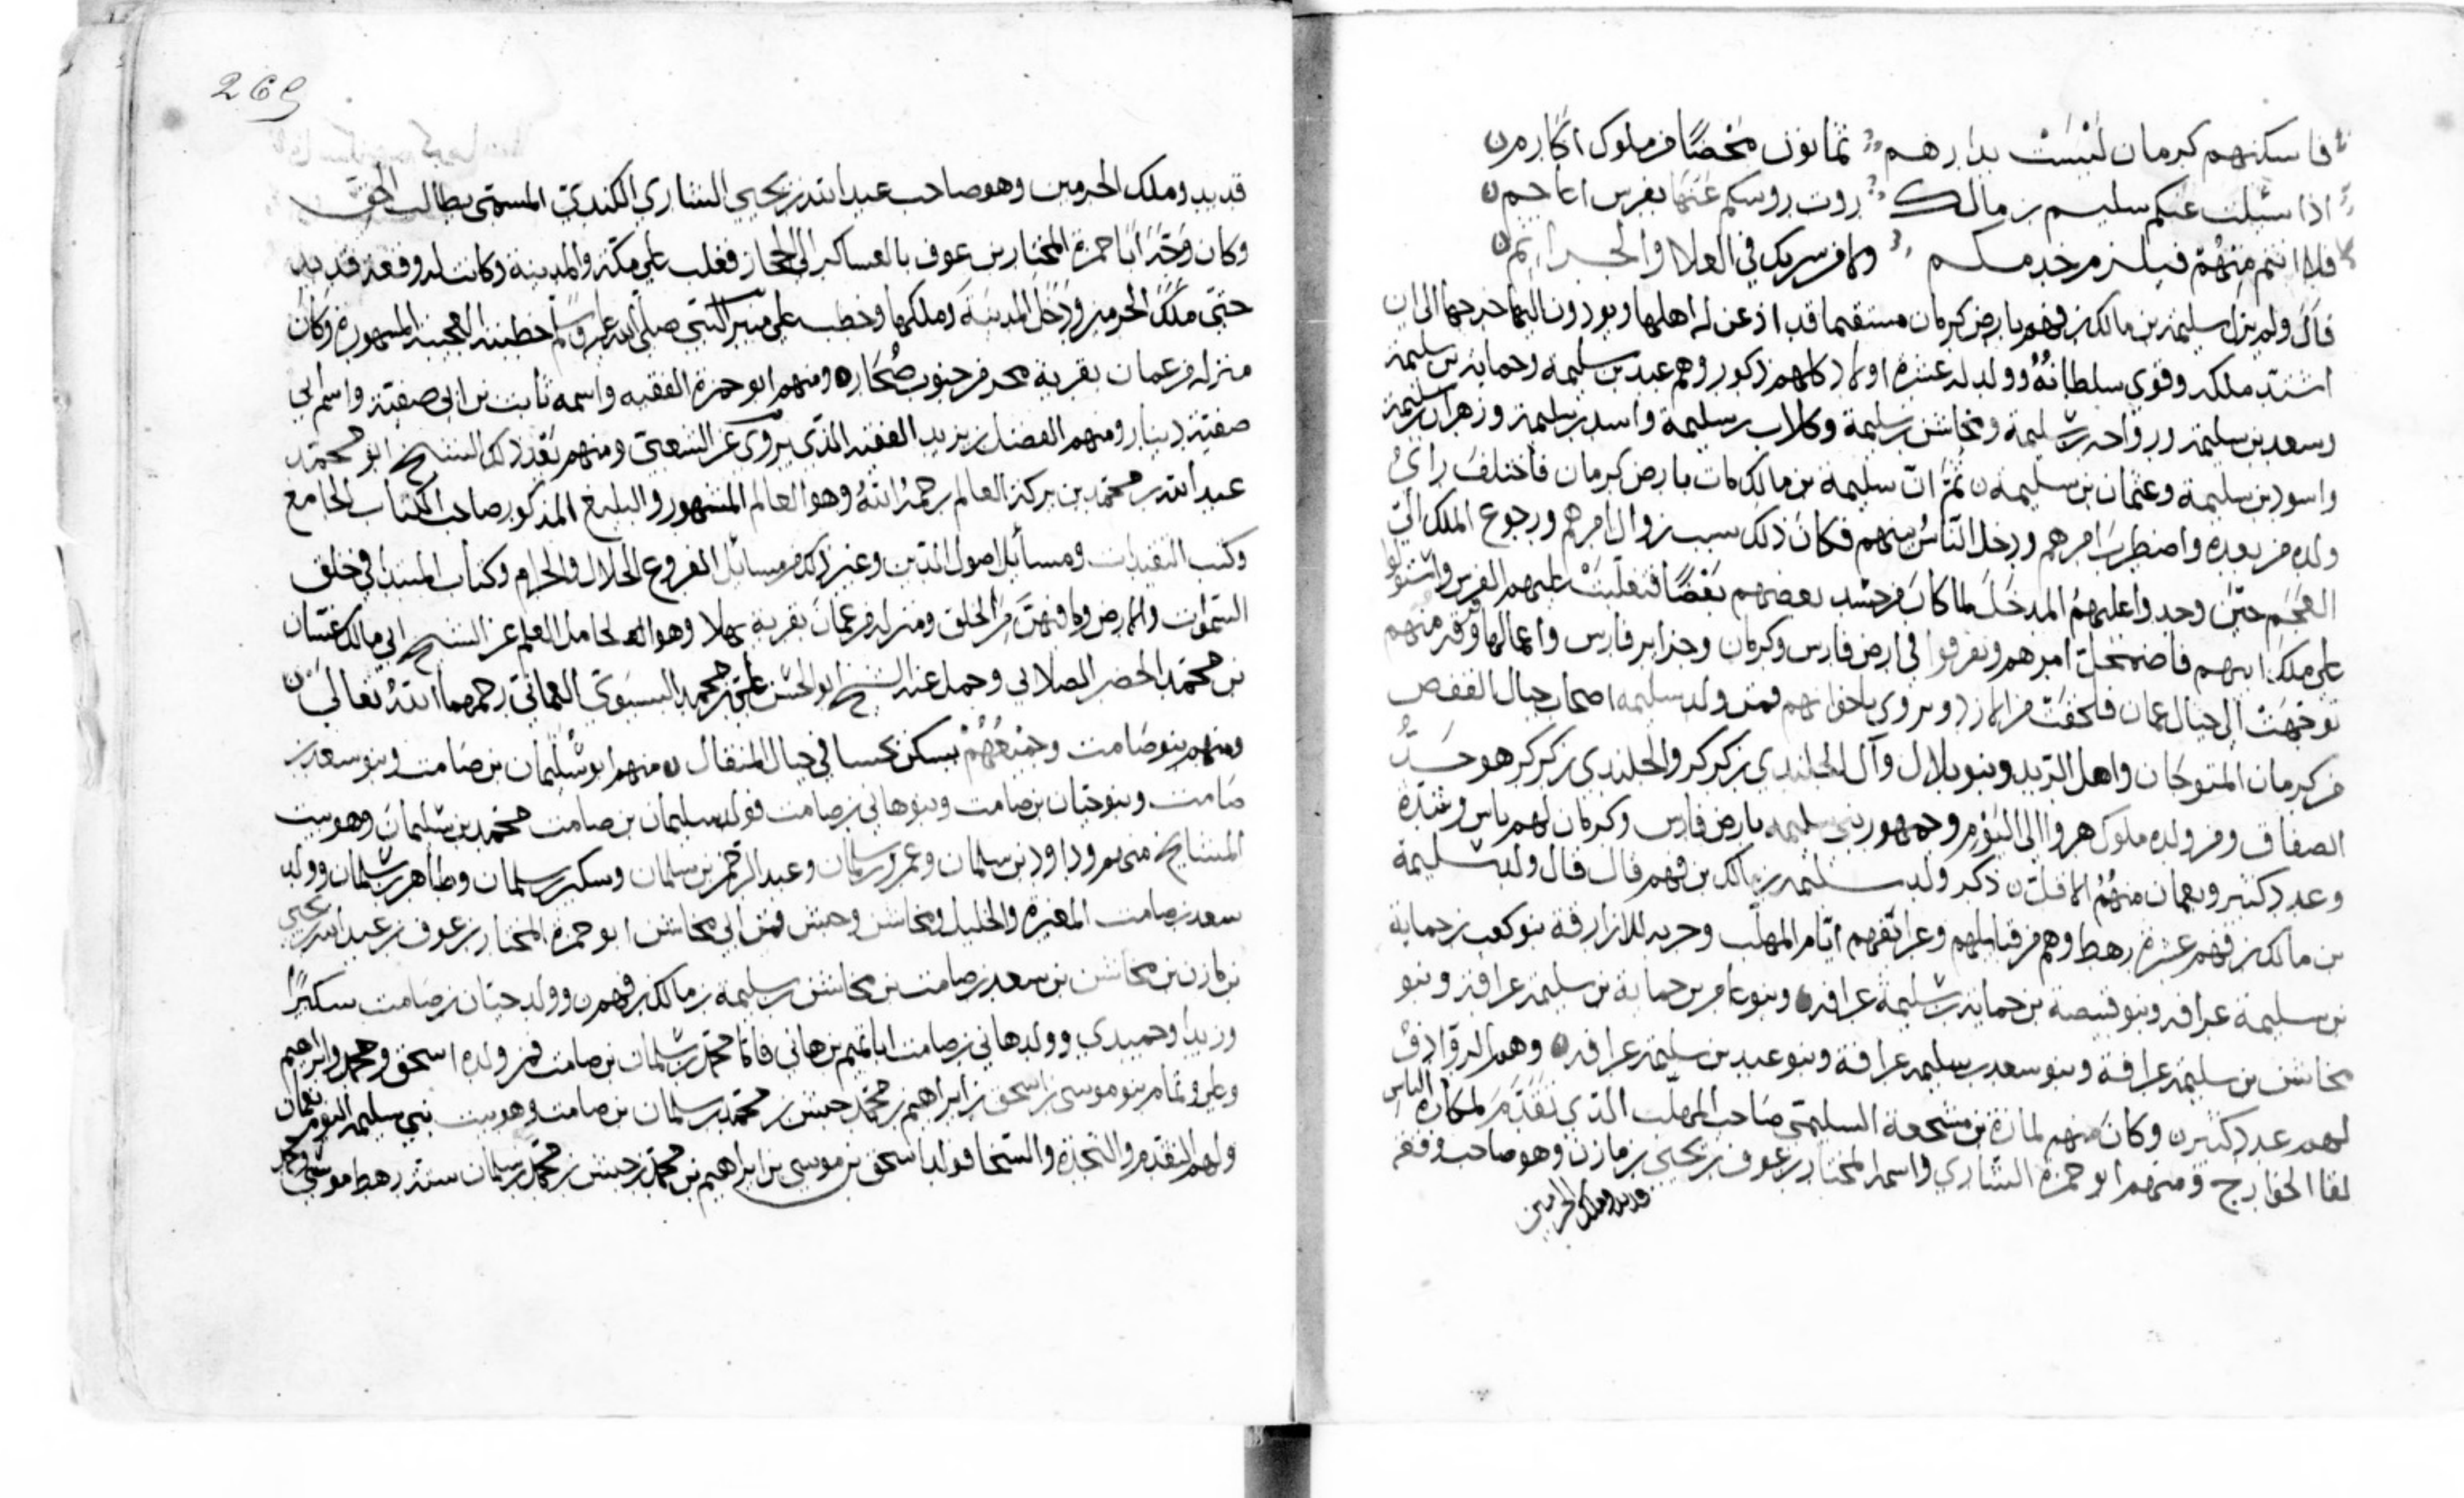 فاسكنهم كرمان ليست بدارهم ثمانون شخصًا من ملوك اكارمن
اذا سئلت عنكم سليم بن مالك روت روسكم عنها بفرس اعاجمن
فلا انتم منهم
قال ولم يزل سليمة بن مالك بن فهم بارض كرمان مستقيما قد اذعن له اهلها ويودون اليها خرجها الى ان
اشتد ملكه وقوي سلطانه وولد له عشرة اولاد كلهم ذكور وهم عبد بن سليمة وحماية بن سليمة
وسعد بن سليمة ورواحه بن سليمة ومخاشن بن سليمة وكلاب بن سليمة واسد بن سليمة وزهران بن سليمة
واسود بن سليمة وعثمان بن سليمة ن ثم ان سليمة بن مالك مات بارض كرمان فاختلف راي
ولده من بعده واضطرب امرهم ودخل الناس بينهم فكان ذلك سبب زوال امرهم ورجوع الملك الى
العجم حتى وجدوا عليهم المدخل لما كان من حسد بعضهم بعضًا فتغلبت عليهم الفرس واستولوا
على ملك ابيهم فاضمحل امرهم وتفرقوا في ارض فارس وكرمان وجزاير فارس واعمالها وفرقة منهم
توجهت الى جبال عمان فلحقت من الازد ويروي باخوانهم فمن ولد سليمة اصحاب جبال القفص
من كرمان المتوجان واهل الزبد وبنو بلال وآل الجلندى بن كركر والجلندى بن كركر هو جد
الصفاق ومن ولده ملوك هرو الى اليوم وجمهور بني سليمه بارض فارس وكرمان لهم باس وشدة
وعدد كثير وبعمان منهم الاقل ن ذكر ولد سليمة بن مالك بن فهم قال قال ولد سليمة
بن مالك بن فهم عشرة رهط وهم من قبايلهم وعرايفهم ايام المهلب وحربه للازارقة بنو كعب بن حماية
بن سليمة عرافه وبنو قبيصة بن حماية بن سليمة عرافه وبنو عامر بن حماية بن سليمة عرافة وبنو
مخاشن بن سليمة عرافة وبنو سعد بن سليمة عرافة وبنو عبد بن سليمة عرافه وهم الروادف
لهم عدد كثير ن وكان منهم لمازة بن مشجعة السليمي صاحب المهلب الذي تقدم لمكان الناس
لقا الخوارج ومنهم ابو حمزة الشاري واسمه المختار بن عوف بن يحيى بن مازن وهو صاحب وقعة
قديد وملك الحرمين
269
قديد وملك الحرمين وهو صاحب عبد الله بن يحيى الشاري الكندي المسمى بطالب الحق
وكان وجه ابا حمزة المختار بن عوف بالعساكر الى الحجاز فغلب على مكة والمدينة وكانت له وقعة قديد
حتى ملك الحرمين ودخل المدينة وملكها وخطب على منبر النبي صلى الله عليه وسلم خطبته العجيبة المشهورة وكان
منزله من عمان بقرية مجز من جنوب صحار ه ومنهم ابو حمزة الفقيه واسمه ثابت بن ابي صفية واسم ابي
صفية دينار ومنهم الفضل بن يزيد الفقيه الذي يروى عن الشعبي ومنهم بعد ذلك الشيخ ابو محمد
عبد الله بن محمد بن بركة العالم رحمه الله وهو العالم المشهور والبليغ المذكور صاحب الكتاب الجامع
وكتب التقييدات ومسائل اصول الدين وغير ذلك من مسائل الفروع الحلال والحرام وكتاب المبتدا في خلق
السموات والارض وما فيهن من الخلق ومنزله من عمان بقرية بهلا وهو الحامل العلم عن الشيخ ابي مالك غسان
بن محمد الخضر الصلاني وحمل عنه الشيخ ابو الحسن علي بن محمد البسيوي العماني رحمهما الله تعالى ن
ومنهم بنو صامت وجميعهم بسكن في جبال المنقال ن منهم ابو سليمان بن صامت وبنو سعد بن
صامت وبنو حيان بن صامت وبنو هاني بن صامت فولد سليمان بن صامت محمد بن سليمان وهو بيت
المشايخ منهم وداود بن سلمان وعمرو بن سلمان وعبد الرحمن بن سلمان وسكير بن سلمان وطاهر بن سلمان وولد
سعد بن صامت المغيرة والخليل ومخاشن وحبش فمن ابي مخاشن ابو حمزة المختار بن عوف بن عبد الله بن يحيى
بن مازن بن مخاشن بن سعد بن صامت بن مخاشن بن سليمة بن مالك بن فهم ن وولد حيان بن صامت سكيرًا
وزيدا وحميدي وولد هاني بن صامت ابا تميم بن هاني فاما محمد بن سلمان بن صامت فمن ولده اسحق ومحمد وابراهيم
وعلى وتمام بنو موسى بن اسحق بن ابراهيم بن محمد حبش بن محمد بن سلمان بن صامت وهو بيت بني سليمة اليوم بعمان
ولهم التقدم والنجدة والسخا فولد اسحق بن موسى بن ابراهيم بن محمد بن حبش بن محمد بن سلمان ستة رهط موسى ومحمد